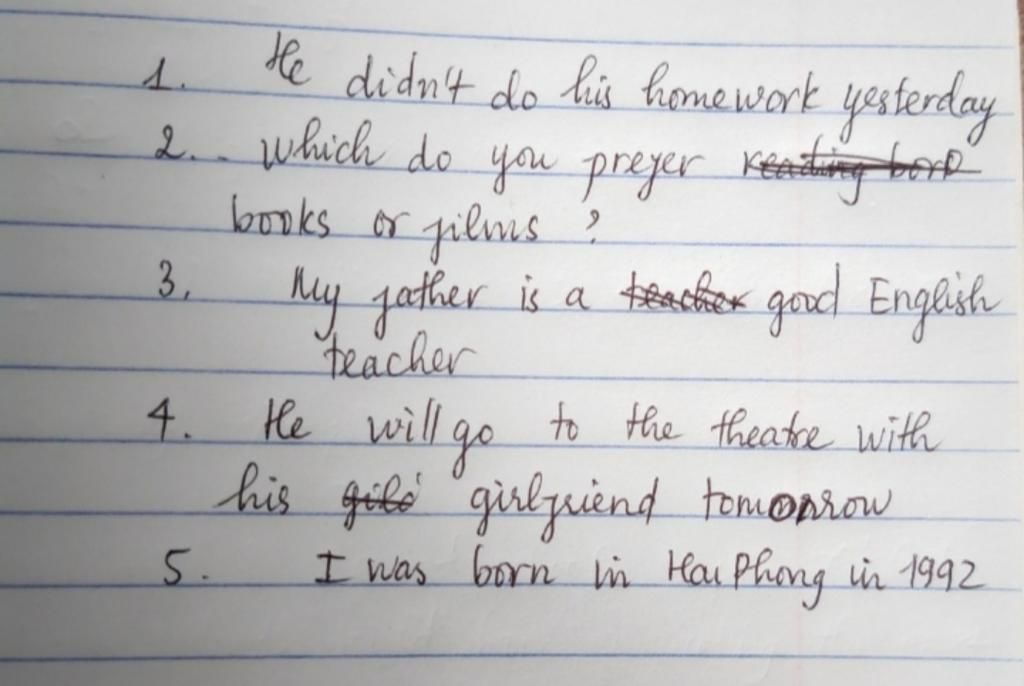 1. He didn't do his homework yesterday
2. - Which do you prefer
books or films ?
3. My father is a teacher good English
teacher
4. He will go to the theatre with
his girlfriend tomorrow
5. I was born in Hai Phong in 1992